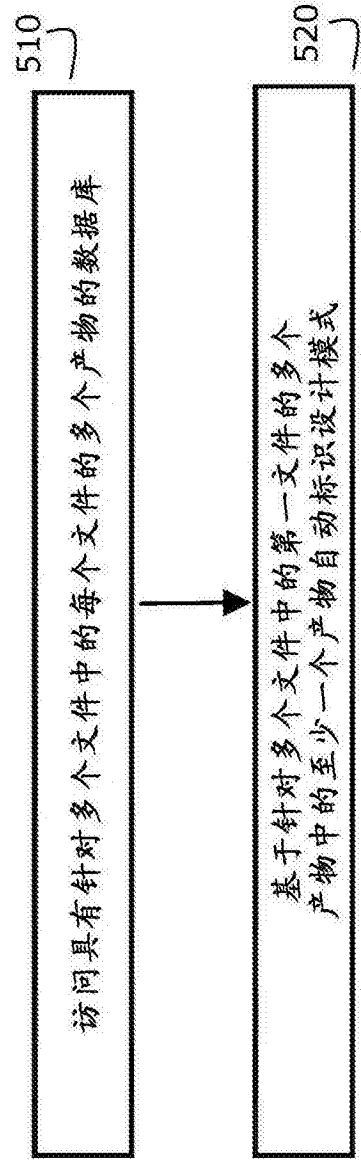 510
访问具有针对多个文件中的每个文件的多个产物的数据库
520
基于针对多个文件中的第一文件的多个
产物中的至少一个产物自动标识设计模式